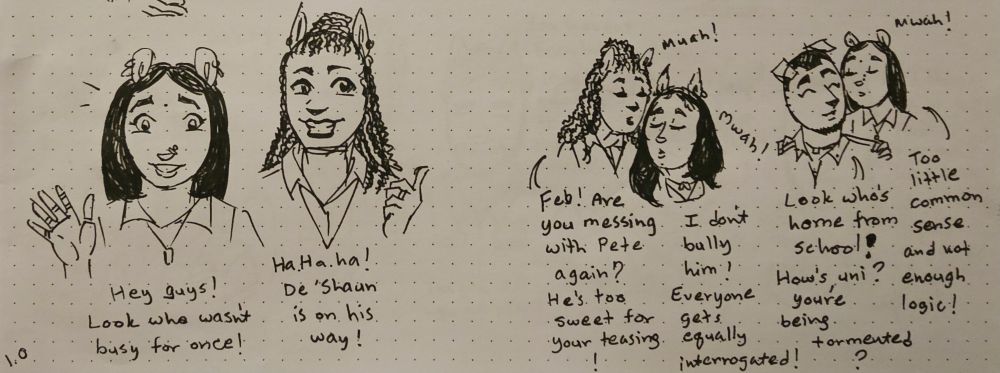 Hey guys!
Look who wasn't
busy for once!
Ha.Ha.ha!
De'Shaun
is on his
way!
Muah!
Mwah!
Feb! Are
you messing
with Pete
again?
He's too
sweet for
your teasing
!
I don't
bully
him!
Everyone
gets
equally
interrogated!
Mwah!
Look who's
home from
school!
How's uni?
you're
being
tormented
?
Too
little
common
sense
and not
enough
logic!
1.0